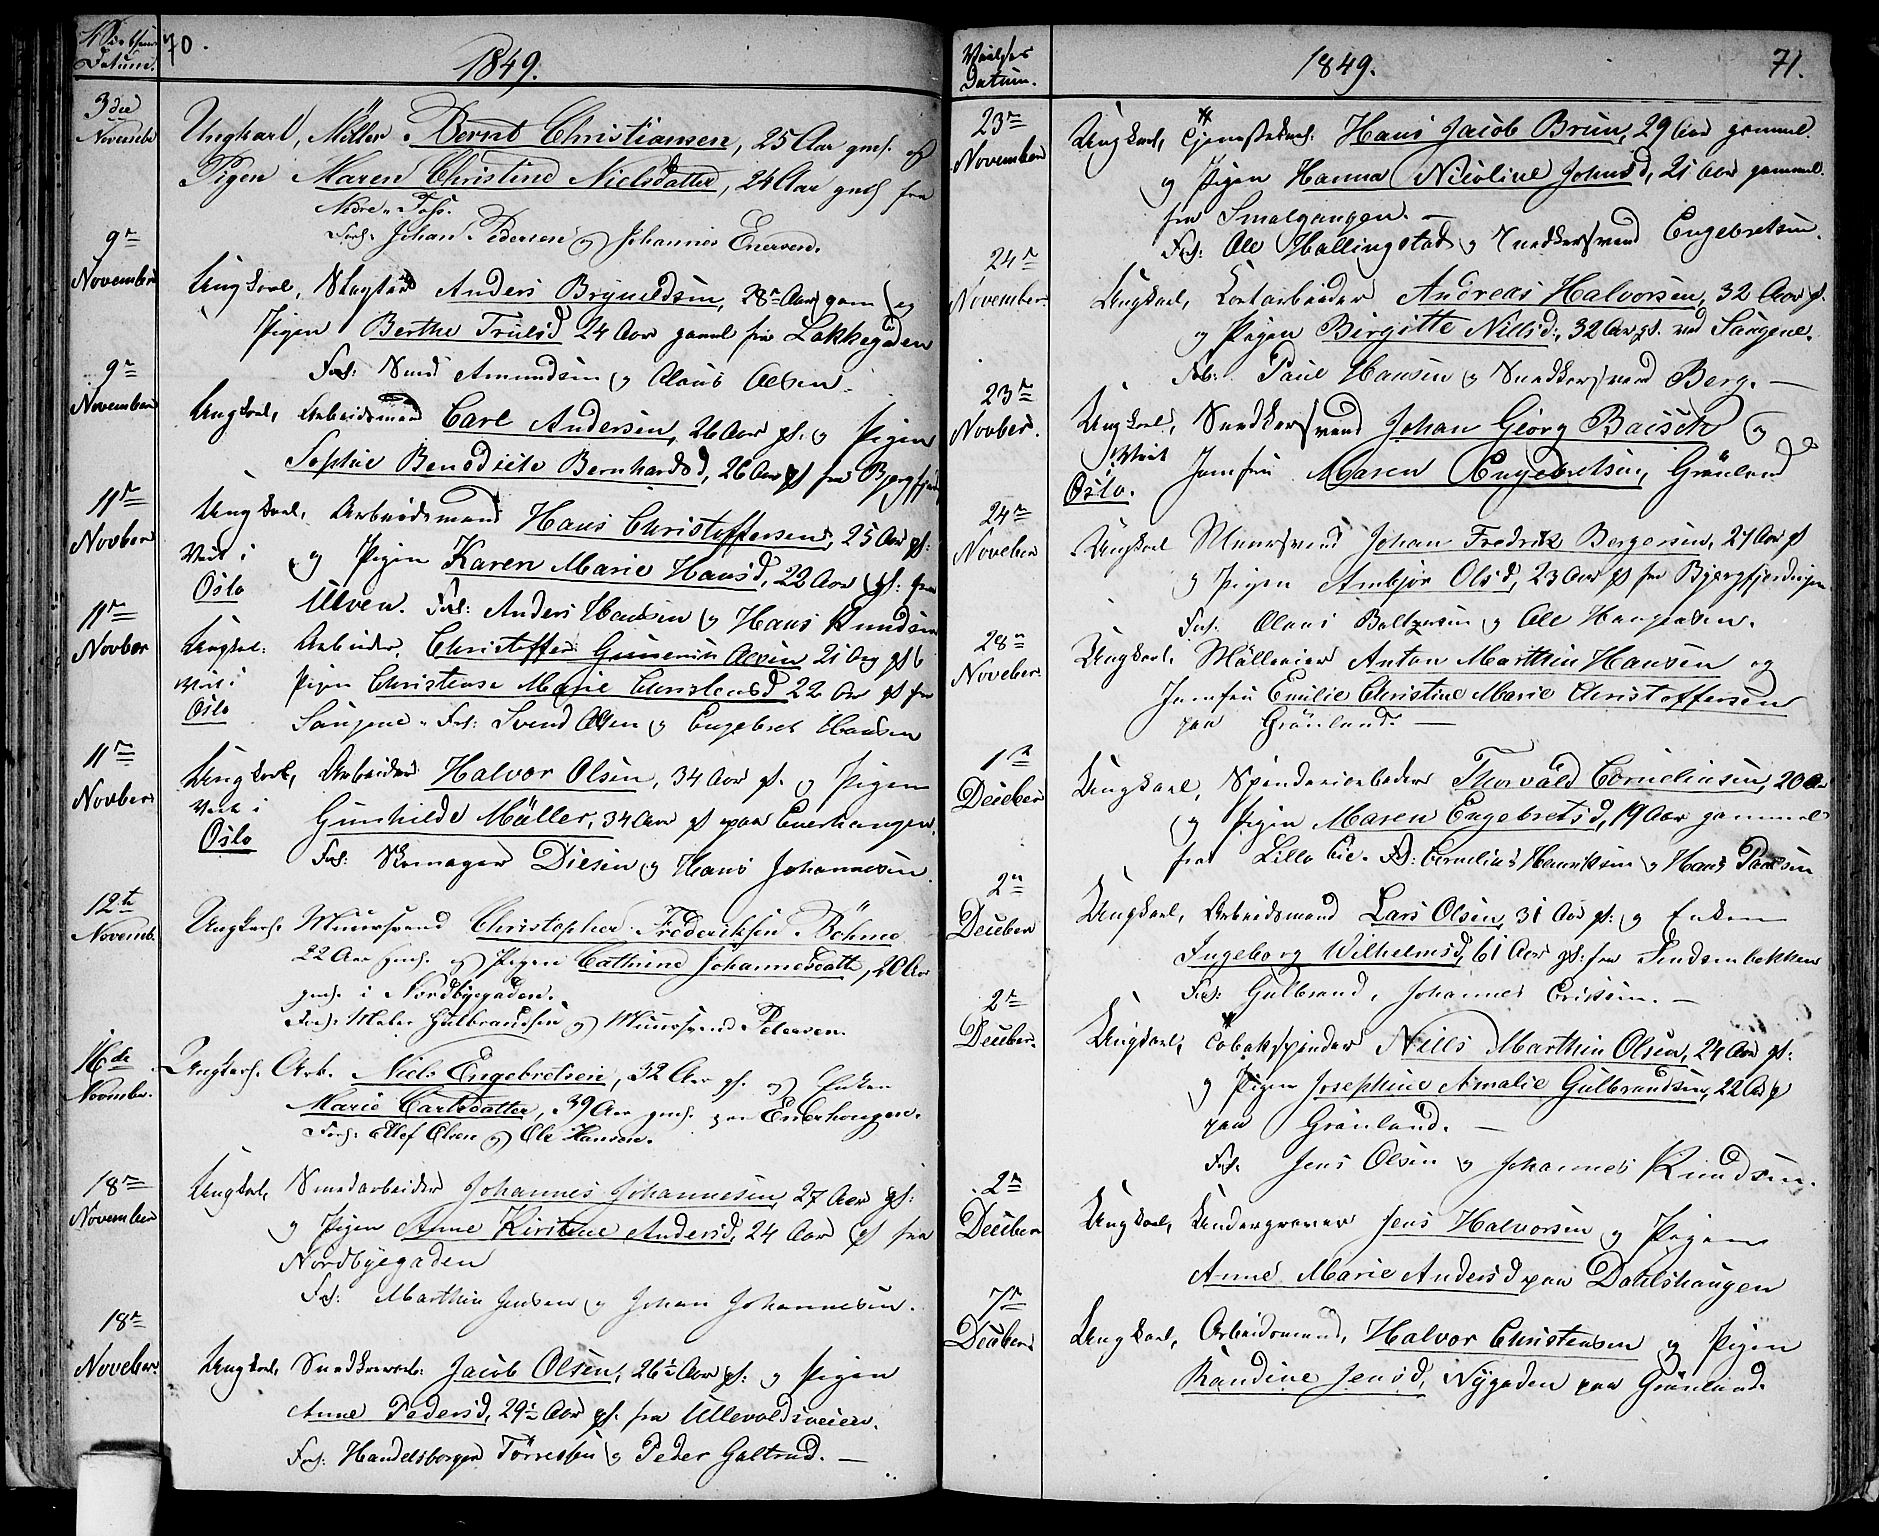 70.
1849.
Datum.
3die
November
Ungkarl, Möller Bernt Christiansen, 25 Aar gml. og
Pigen Maren Christine Nielsdatter, 24 Aar gml fra
Nedre-Foss.
Forl: Johan Pedersen og Johannes Enersen.
9n
November
Ungkarl, Anders Bryneldsen, 28n Aar gam og
Pigen Berthe Trulsd 24 Aar gamel fra Lakkegaden
Forl: Amundsen og Olaus Olsen.
9n
November
Ungkarl, Arbeidsmand Carl Andersen, 26 Aar gl. og Pigen
Sophie Benedicte Bernhardsd, 26 Aar gl fra
11n
Novber
Ungkarl, Arbeidsmand Hans Christoffersen, 25 Aar gl:
Viet i
Oslo
og Pigen Karen Marie Hansd, 22 Aar gl: fra
Ulven. Forl: Anders Hansen og Hans Knudsen
11n
Novber
Ungkarl: Arbeider, Christoffer Olsen 21 Aar gl
Viet i
Oslo
Pigen Christense Marie Christensd 22 Aar gl fra
Saugene. Forl: Svend Olsen og Engebret Hansen
11n
Novber
Ungkarl, Arbeider Halvor Olsen, 34 Aar gl. og Pigen
Viet i
Oslo
Gunhilde Müller, 34 Aar gl paa Enerhaugen.
Forl: Skomager Diesen og Hans Johannesen
12te
Novemb.
Ungkarl. Muursvend Christopher Frederiksen Böhme
22 Aar gml. og Pigen Cathrine Johannesdatter, 20 Aar
gml. i Nordbygaden.
Forl: Maler Gulbrandsen og Muursvend Petersen.
16de
November.
Ungkarl. Arb. Niels Engebretsen, 32 Aar gl. og Enken
Marie Carlsdatter, 39 Aar gml. paa Enerhougen.
Forl: Ellef Olsen og Ole Hansen.
18n
November
Ungkarl, Johannes Johannesen, 27 Aar gl:
og Pigen Anne Kirstine Andersd, 24 Aar gl fra
Nordbyegaden
Forl: Marthin Jensen og Johan Johannesen.
18n
Noveber
Ungkarl, Jacob Olsen, 26½ Aar gl: og Pigen
Anne Pedersd, 29½ Aar gl. fra Ullevoldsveien.
Forl: Handelsborger Törresen og Peder Galtrud.
Vielses
Datum.
1849.
71.
23n
November
Ungkarl, Tjenestekarl: Hans Jacob Brun, 29 Aar gammel.
og Pigen Hanna Nicoline Johnsd, 21 Aar gammel
fra Smalgangen.
Forl: Ole Hallingstad og Snedkersvend Engebretsen.
24n
November.
Ungkarl, Andreas Halvorsen, 32 Aar gl.
og Pigen Birgitte Nilsd:, 32 Aar gl. ved Saugene.
Forl: Paul Hansen og Snedkersvend Berg.
23n
Novber.
Ungkarl, Snedkersvend Johan Georg Baisch og
Viet
Oslo.
Jomfru Maren Engebretsen, Grönland
24n
Noveber
Ungkarl Muursvend Johan Fredrik Bergersen, 27 Aar gl
og Pigen Ambjør Olsd, 23 Aar gl fra Bjergfjerdingen
Forl. Olaus Baltzersen og Ole Haagensen.
28n
Noveber.
Ungkarl. Anton Marthin Hansen og
Jomfru Emilie Christine Marie Christoffersen
paa Grönland.
1n
Deceber
Ungkarl, Spinderiarbeider Thorvald Corneliusen, 20 Aar
og Pigen Maren Engebretsd, 19 Aar gammel
fra Lilloe Eie. Forl: Cornelius Henriksen og Hans Paulsen
2n
Deceber
Ungkarl, Arbeidsmand Lars Olsen, 31 Aar gl: og Enken
Ingeborg Wilhelmsd, 61 Aar gl: fra
Forl: Gulbrand, Johannes Eriksen.
2n
Deceber.
Ungkarl, Tobakspinder Niels Marthin Olsen, 24 Aar gl:
og Pigen Josephine Amalie Gulbrandsen, 22 A gl
paa Grönland.
Forl. Jens Olsen og Johannes Knudsen.
2n
Deceber
Ungkarl, Jens Halvorsen og Pigen
Anne Marie Andersd paa Dahlshaugen
7n
Deceber
Ungkarl, Arbeidsmand, Halvor Christensen og Pigen
Randine Jensd, Nygaden paa Grönland.